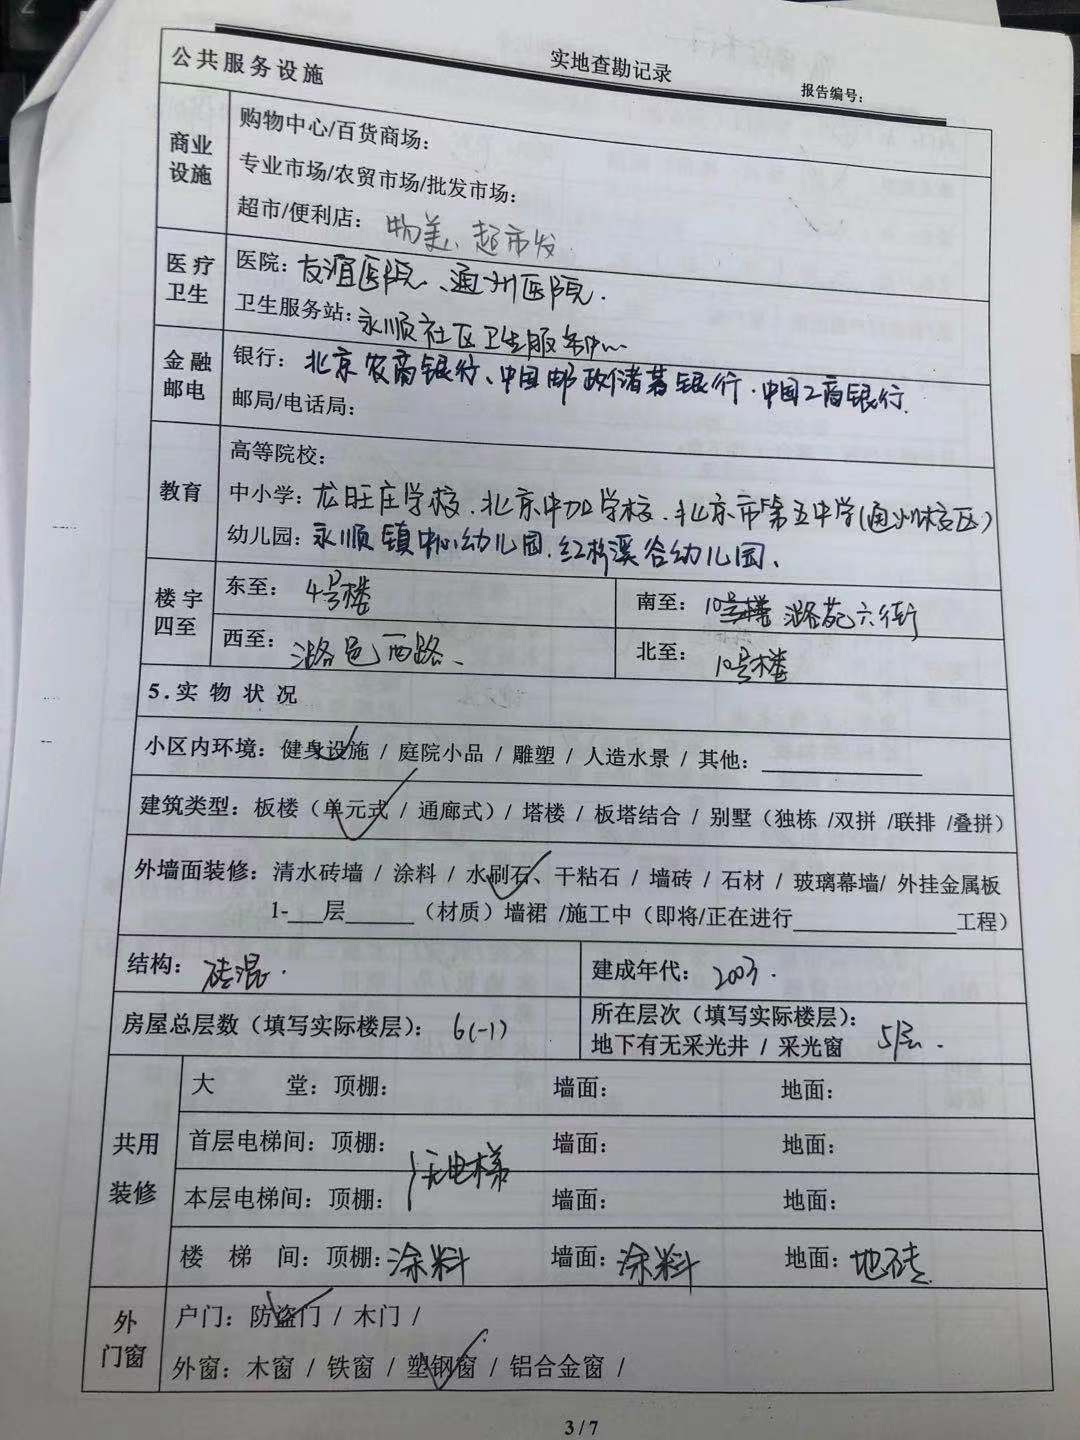 实地查勘记录
报告编号：
公共服务设施
商业设施
购物中心/百货商场：
专业市场/农贸市场/批发市场：
超市/便利店： 物美、超市发
医疗卫生
医院：友谊医院、通州医院.
卫生服务站：永顺社区卫生服务中心
金融邮电
银行：北京农商银行、中国邮政储蓄银行.中国工商银行.
邮局/电话局：
教育
高等院校：
中小学：龙旺庄学校.北京中加学校.北京市第五中学(通州校区)
幼儿园：永顺镇中心幼儿园.红杉溪谷幼儿园、
楼宇四至
东至： 4号楼
南至： 10号楼 潞苑六街
西至： 潞邑西路、
北至： 10号楼
5.实物状况
小区内环境：健身设施 / 庭院小品 / 雕塑 / 人造水景 / 其他：
建筑类型：板楼（单元式 / 通廊式）/ 塔楼 / 板塔结合 / 别墅（独栋 /双拼 /联排 /叠拼）
外墙面装修：清水砖墙 / 涂料 / 水刷石、干粘石 / 墙砖 / 石材 / 玻璃幕墙/ 外挂金属板
1-___层______（材质）墙裙 /施工中（即将/正在进行______________工程）
结构： 砖混.
建成年代： 2003.
房屋总层数（填写实际楼层）： 6(-1)
所在层次（填写实际楼层）：
地下有无采光井 / 采光窗 5层.
共用装修
大堂：顶棚： 墙面： 地面：
首层电梯间：顶棚： 墙面： 地面：
无电梯
本层电梯间：顶棚： 墙面： 地面：
楼梯间：顶棚：涂料 墙面：涂料 地面：地砖
外门窗
户门：防盗门 / 木门 /
外窗：木窗 / 铁窗 / 塑钢窗 / 铝合金窗 /
3 / 7